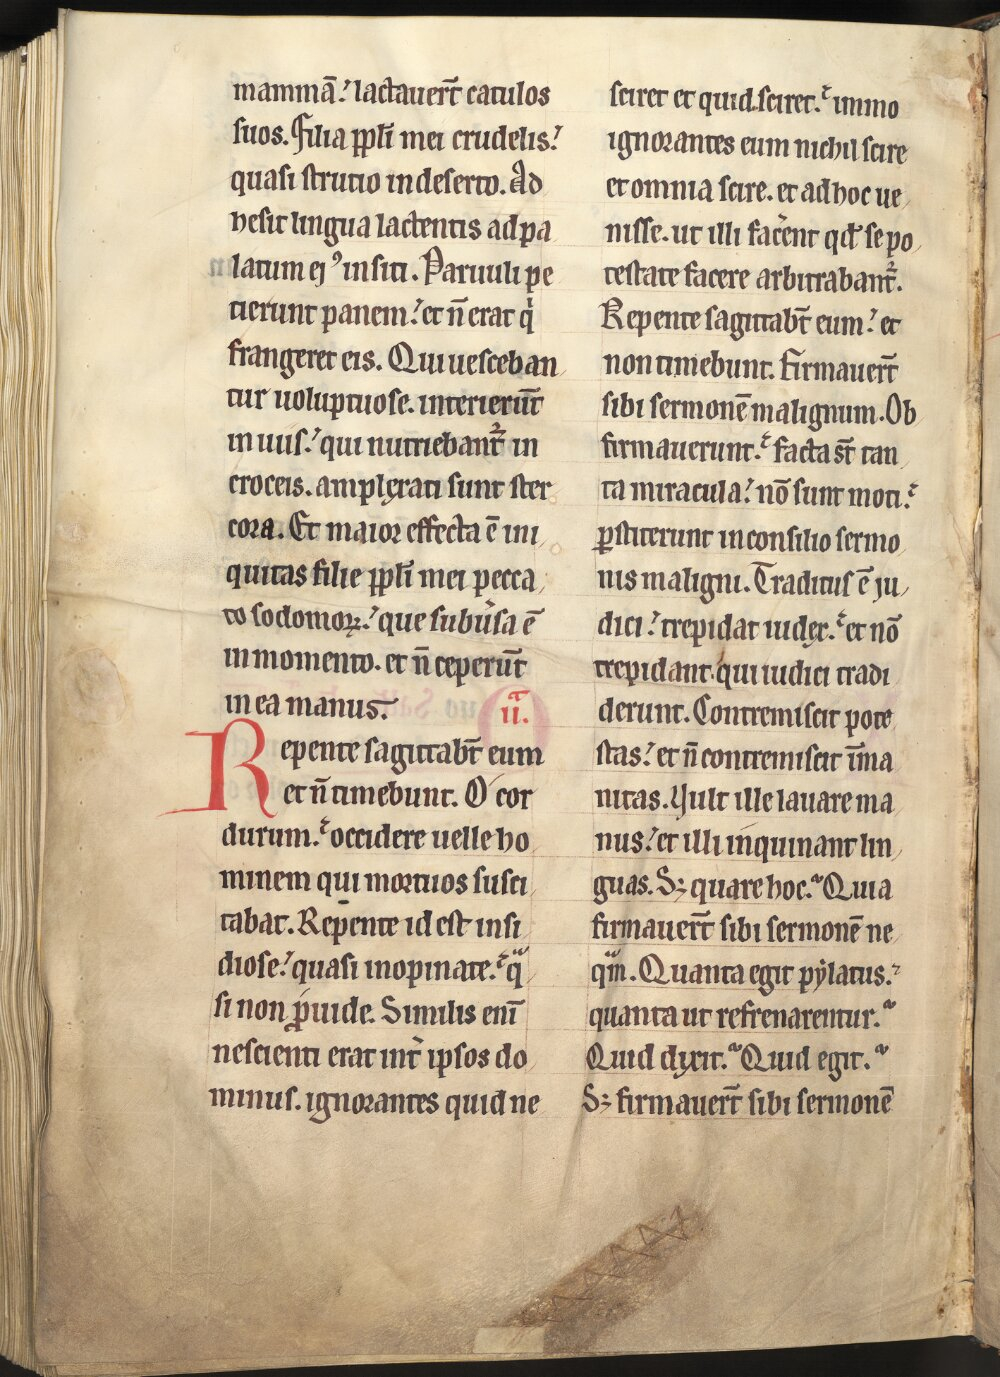 mammā. lactauer̄t catulos
suos. Filia ppl̄i mei crudelis.
quasi strutio in deserto. Ad
hesit lingua lactentis ad pa
latum ejꝰ in siti. Paruuli pe
tierunt panem. et n̄ erat qͥ
frangeret eis. Qui uesceban
tur uoluptuose. interierūt
in uiis. qui nutriebant᷑ in
croceis. amplexati sunt ster
cora. Et maior effecta ē ini
quitas filie ppl̄i mei pecca
to sodomoꝝ. que subūsa ē
in momento. et n̄ ceperūt
in ea manus.
ij.
Repente sagittab̄t eum
et n̄ timebunt. O cor
durum. occidere uelle ho
minem qui mortuos susci
tabat. Repente id est insi
diose. quasi inopinate. qͣ
si non p̄uide. Similis enī
nescienti erat int̄ ipsos do
minus. ignorantes quid ne
sciret et quid sciret. immo
ignorantes eum nichil scire
et omnia scire. et ad hoc ue
nisse. ut illi fac̄ent qđ se po
testate facere arbitrabant᷑.
Repente sagittab̄t eum. et
non timebunt. Firmauer̄t
sibi sermonē malignum. Ob
firmauerunt. facta sт̄ tan
ta miracula. nō sunt moti.
ꝑstiterunt in consilio sermo
nis maligni. Traditus ē ju
dici. trepidat iudex. et nō
trepidant qui iudici tradi
derunt. Contremiscit pote
stas. et n̄ contremiscit īma
nitas. Uult ille lauare ma
nus. et illi inquinant lin
guas. Sꝫ quare hoc. Quia
firmauer̄t sibi sermonē ne
qͣm. Quanta egit pẏlatus.
quanta ut refrenarentur.
Quid dixit. Quid egit.
Sꝫ firmauer̄t sibi sermonē